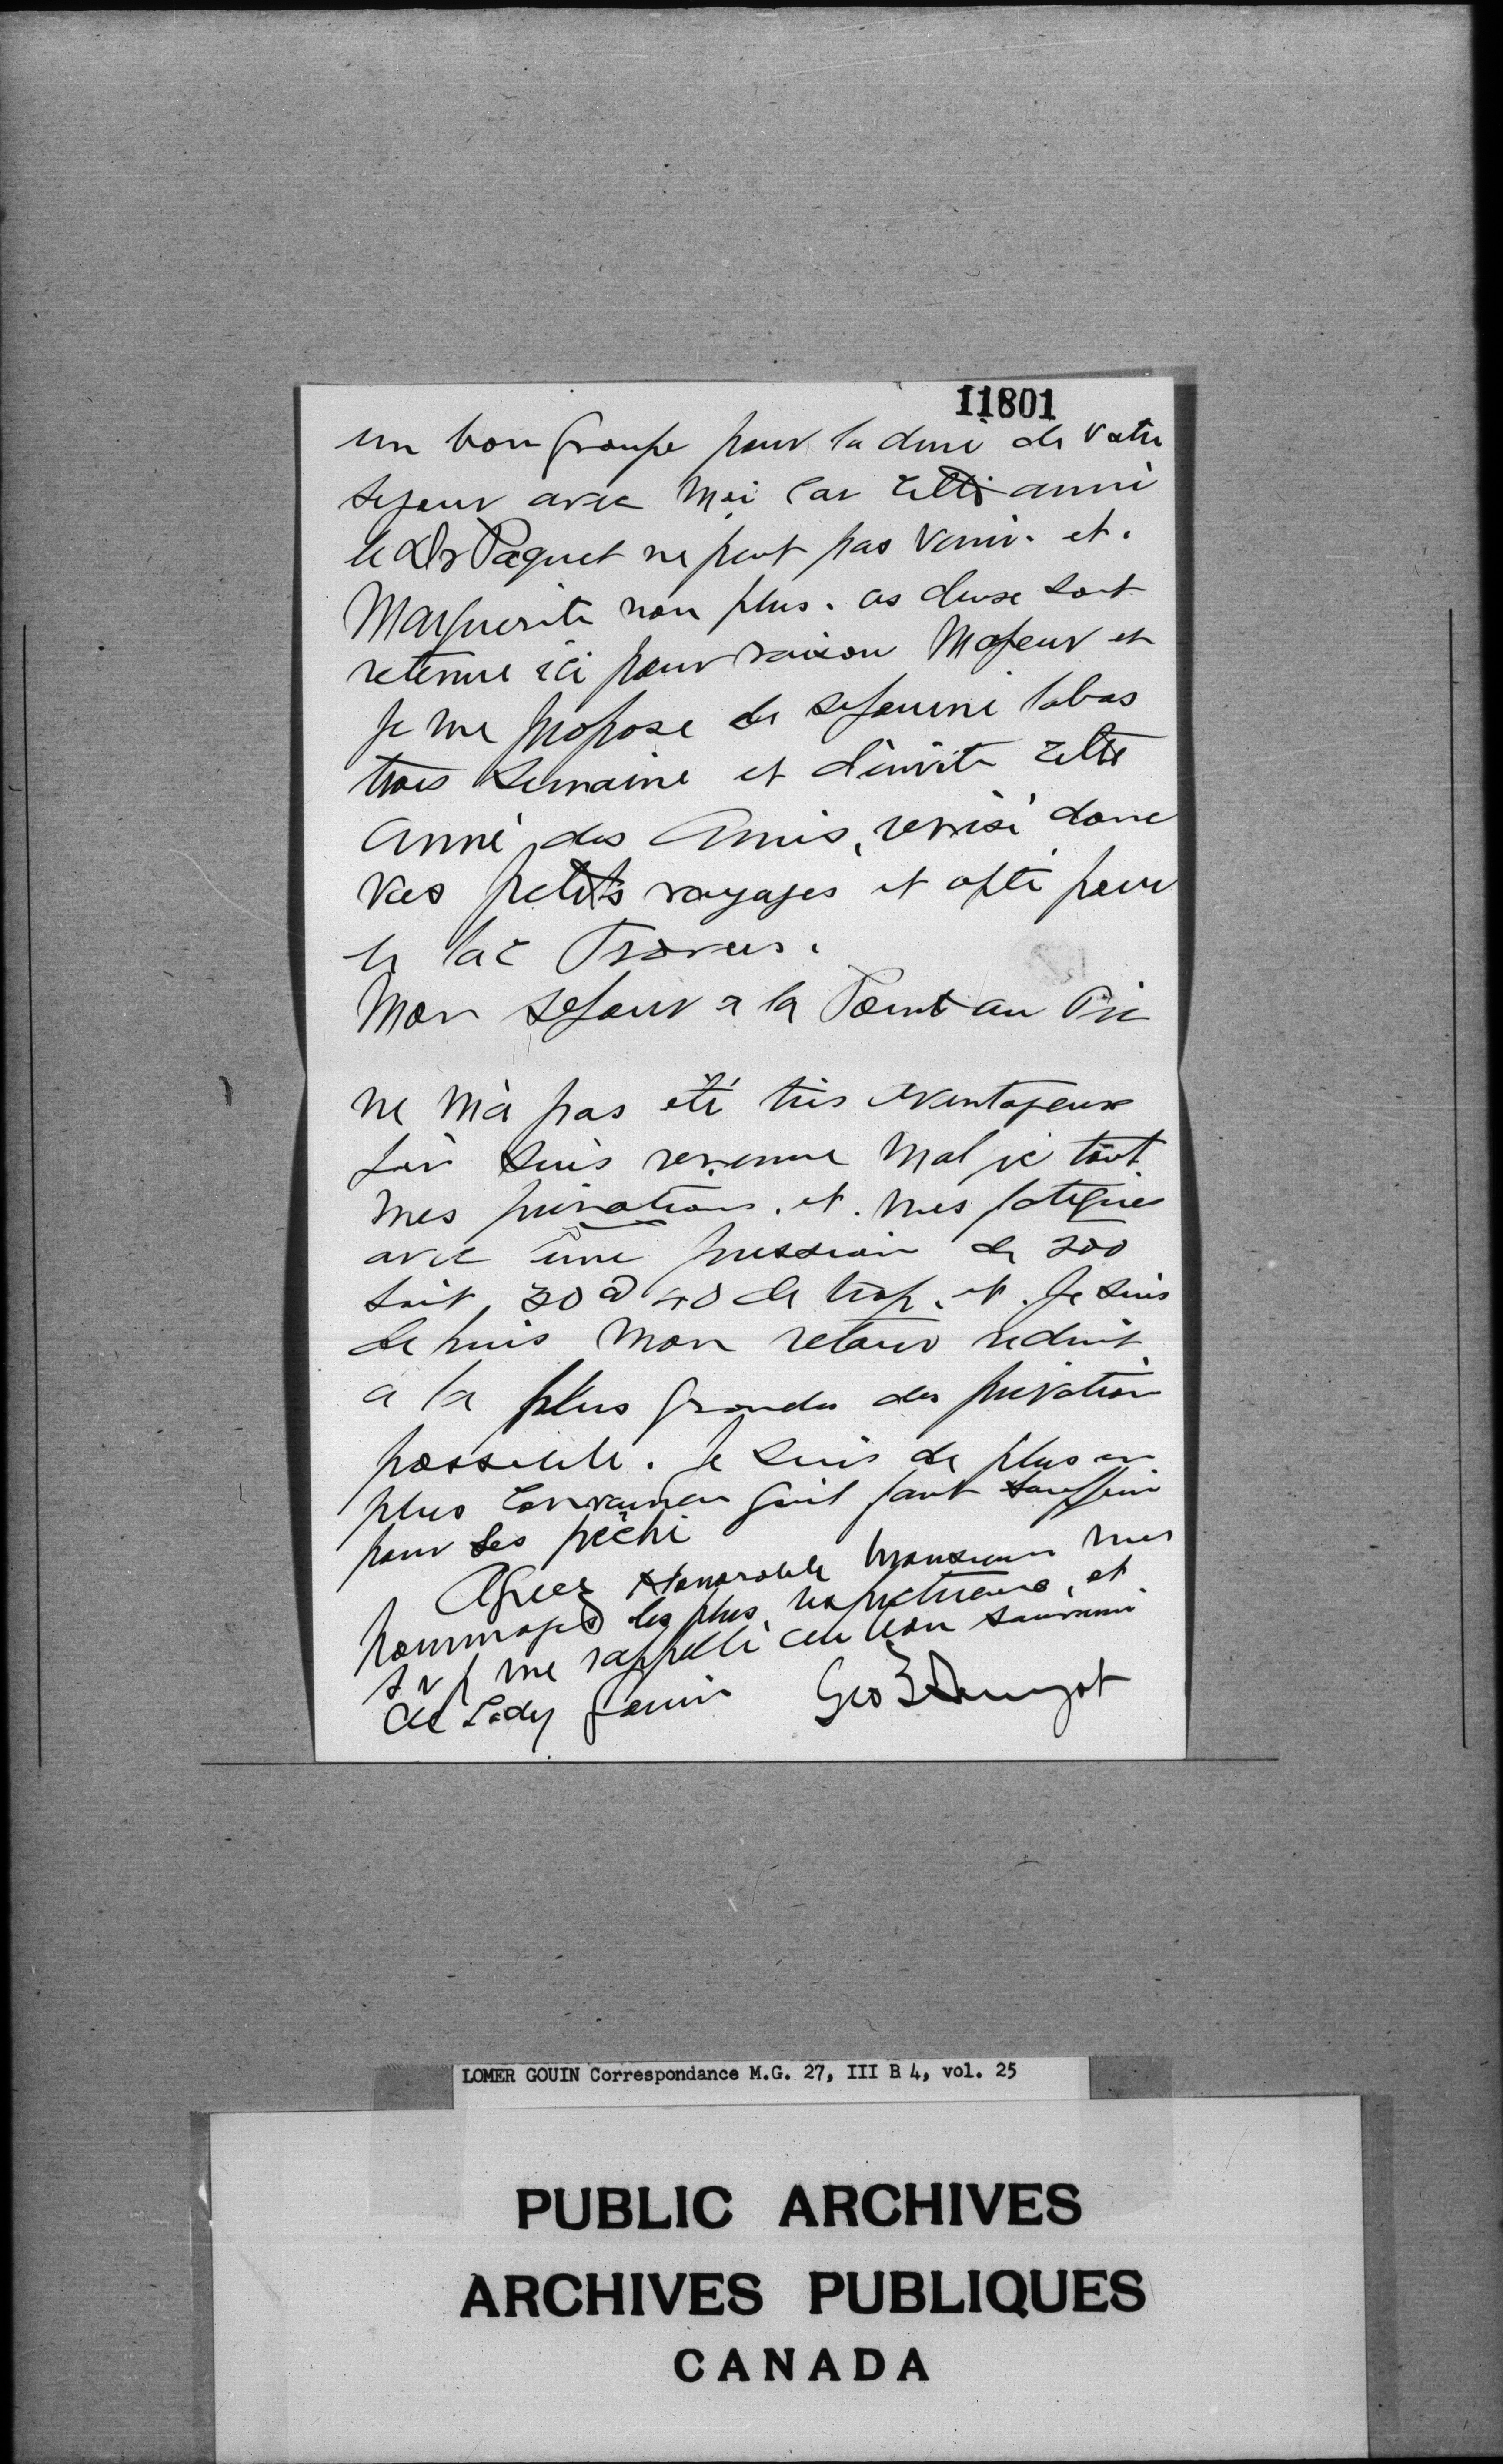 11801
un bon groupe pour la duré de votre
sejour avec moi car cette anné
le Dr Paquet ne peut pas venir. et.
Marguerite non plus. ces deux sont
retenue ici pour raison Majeur et
je me propose de sejourné labas
trois semaine et d'invité cette
anné des Amis, revisé donc
vos petits voyages et opté pour
le lac Travers.
Mon sejour a la Point au Pic
ne m'a pas été très avantageux
j'en suis revenue mal je tout
mes privations. et. mes fatigues
avec une pression de 200
soit 30 a 40 de trop. et. Je suis
depuis mon retour reduit
a la plus grandes des privation
possible. Je suis de plus en
plus convaincu qu'il faut souffrir
pour ses péché
Agreez Honorable Monsieur mes
hommages les plus respectueux, et
s v p me rappelé au bon souvenir
de Lady Gouin Geo
LOMER GOUIN Correspondance M.G. 27, III B 4, vol. 25
PUBLIC ARCHIVES
ARCHIVES PUBLIQUES
CANADA